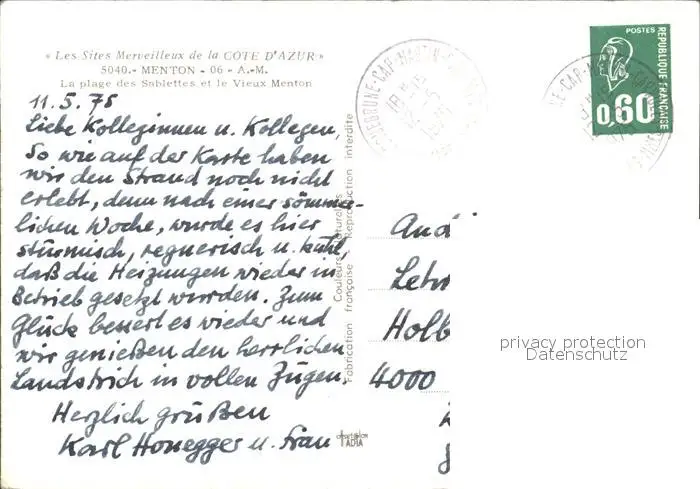 « Les Sites Merveilleux de la CÔTE D'AZUR »
5040.- MENTON - 06 - A.-M.
La plage des Sablettes et le Vieux Menton
11.5.78
Liebe Kolleginnen u. Kollegen,
So wie auf der Karte haben
wir den Strand noch nicht
erlebt, denn nach einer sömmer-
lichen Woche, wurde es hier
stürmisch, regnerisch u. kühl,
daß die Heizungen wieder in
Betrieb gesetzt wurden. Zum
Glück bessert es wieder und
wir genießen den herrlichen
Landstrich in vollen Zügen.
Herzlich grüßen
Karl Honegger u. Frau
Couleurs naturelles
Fabrication française Reproduction interdite
ADIA
ROQUEBRUNE-CAP-MARTIN
POSTES
RÉPUBLIQUE FRANÇAISE
0,60
Holb
4000
privacy protection
Datenschutz